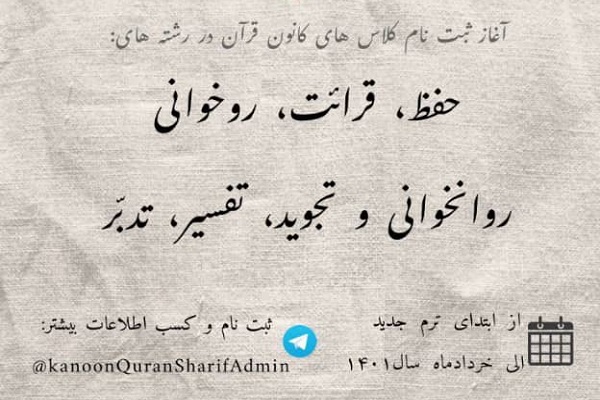 آغاز ثبت نام کلاس های کانون قرآن در رشته های:
حفظ، قرائت، روخوانی
روانخوانی و تجوید، تفسیر، تدبّر
از ابتدای ترم جدید
الی خردادماه سال۱۴۰۱
ثبت نام و کسب اطلاعات بیشتر:
@kanoonQuranSharifAdmin